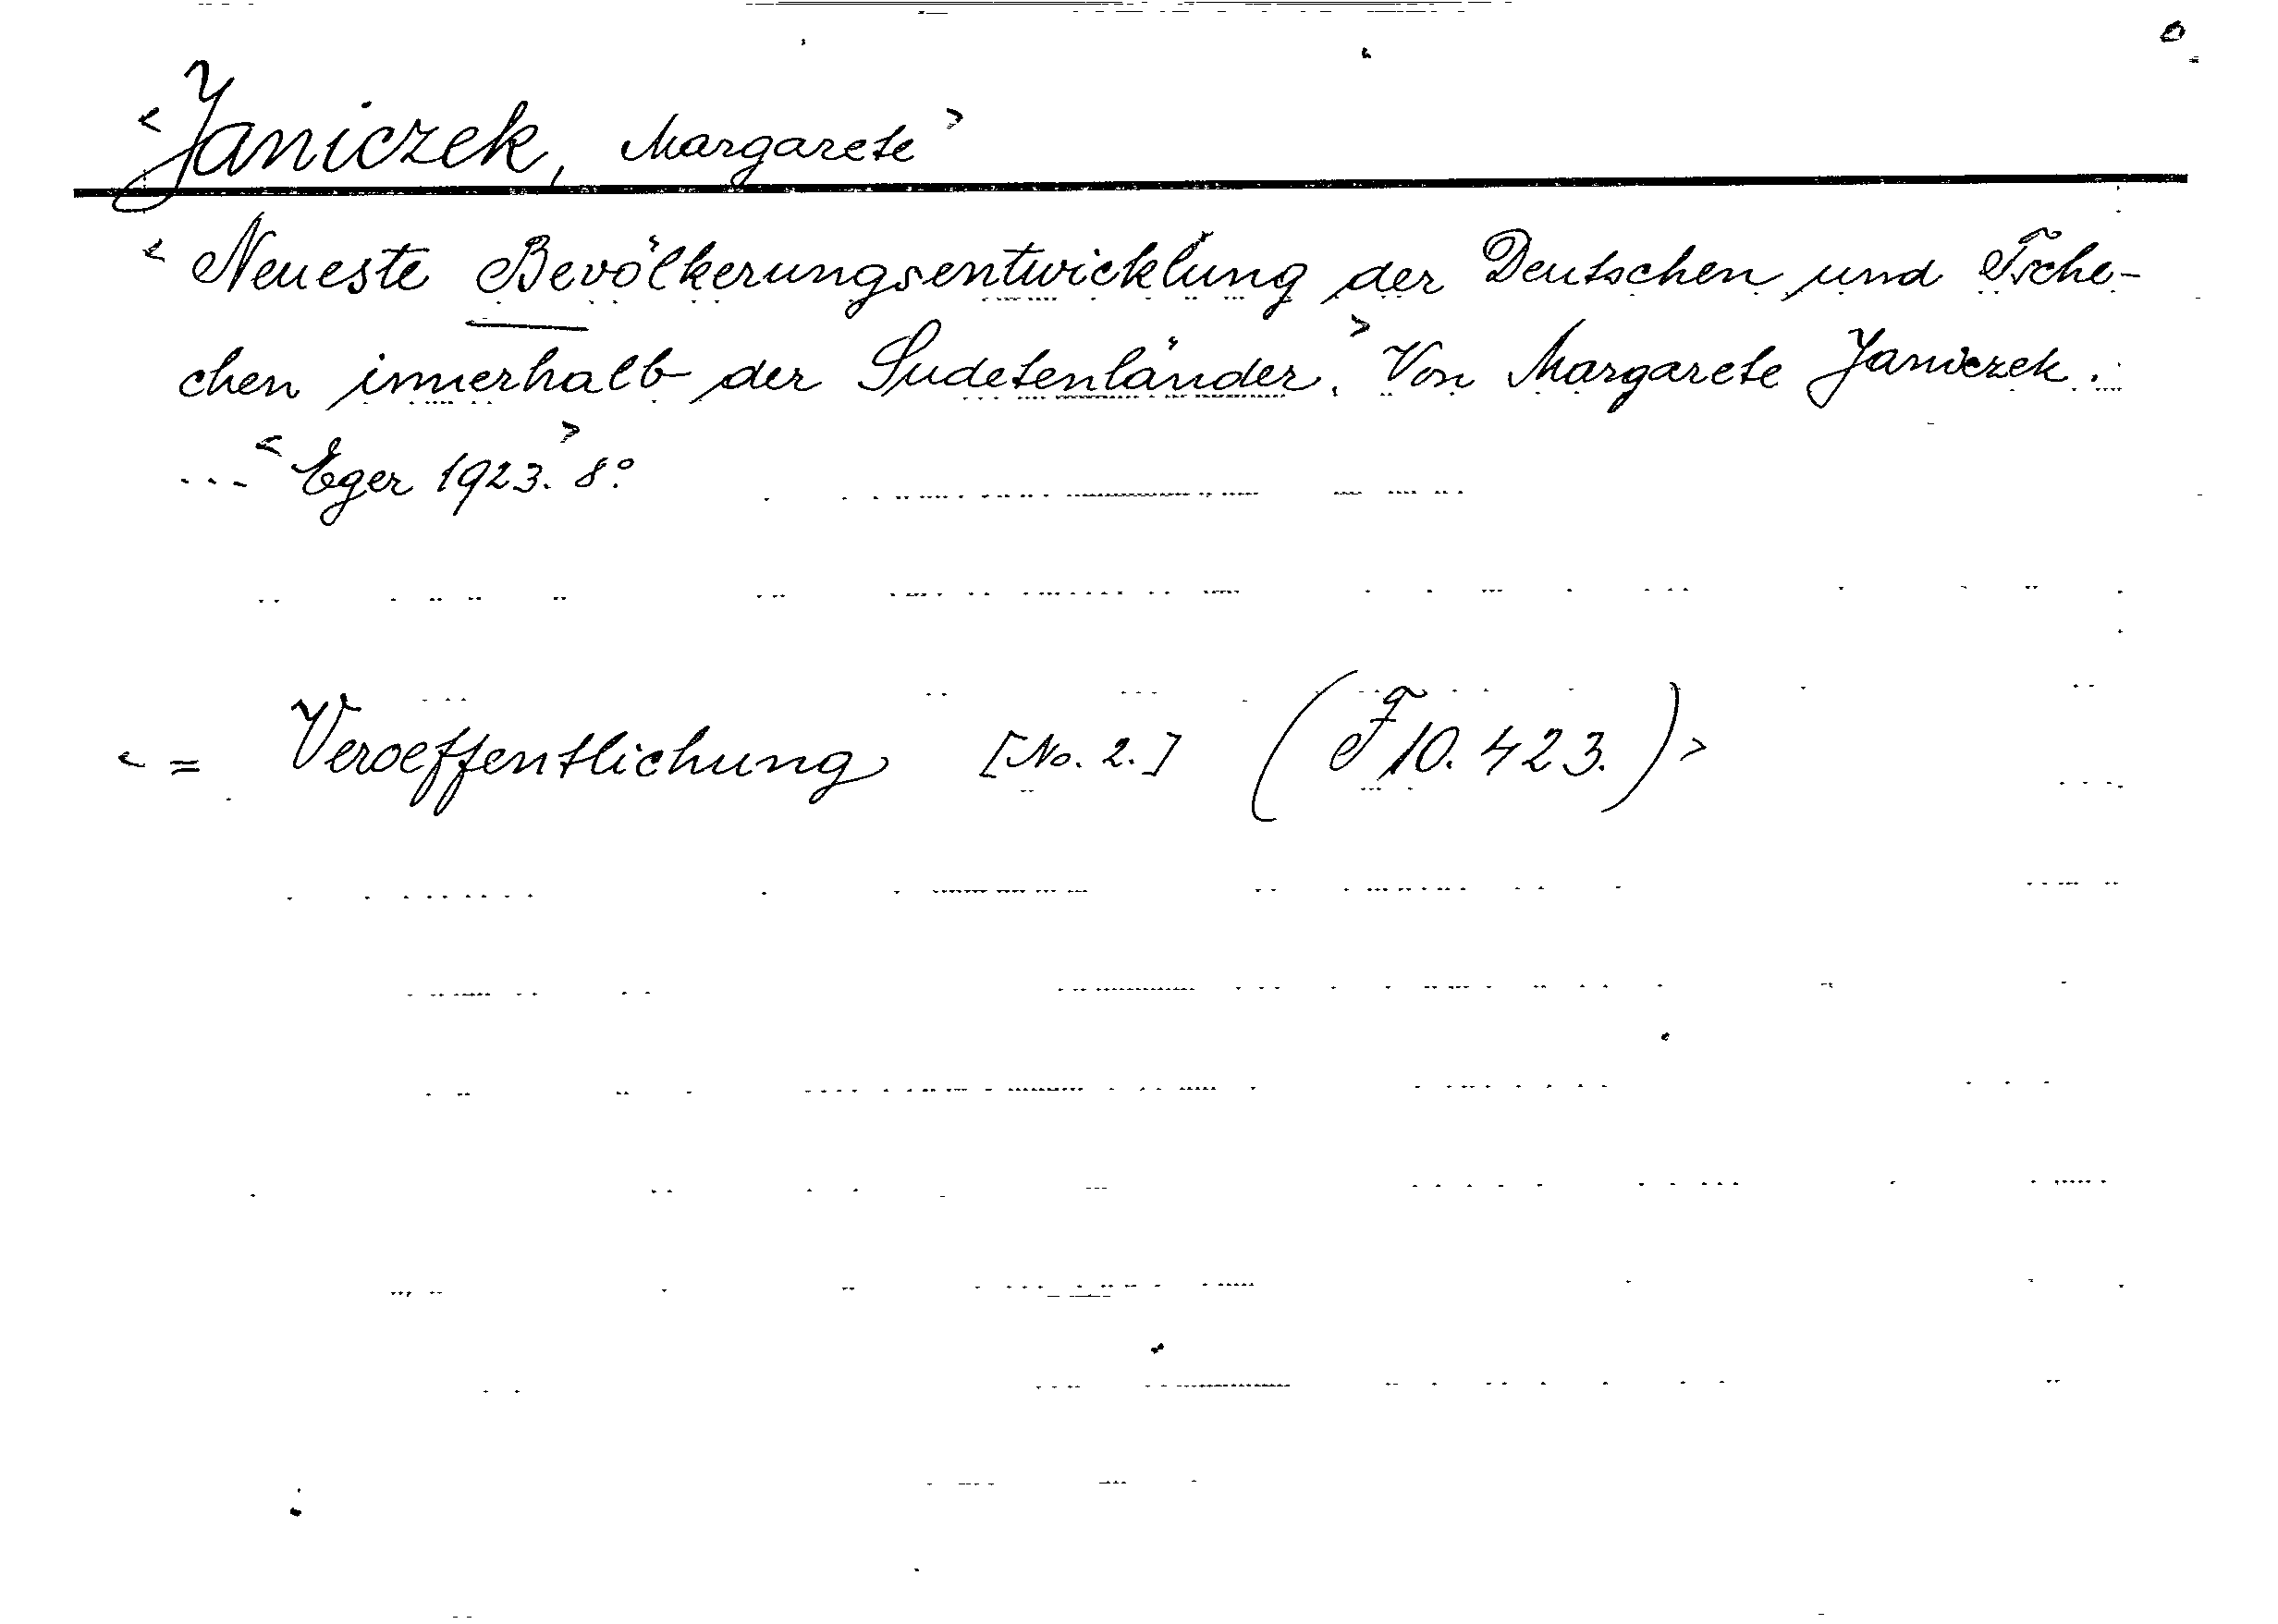 <Janiczek, Margarete>
<Neueste Bevölkerungsentwicklung der Deutschen und Tsche-
chen innerhalb der Sudetenländer.> Von Margarete Janiczek.
... <Eger 1923.> 8°.
<= Veroeffentlichung [No. 2.] (F 10.423.)>